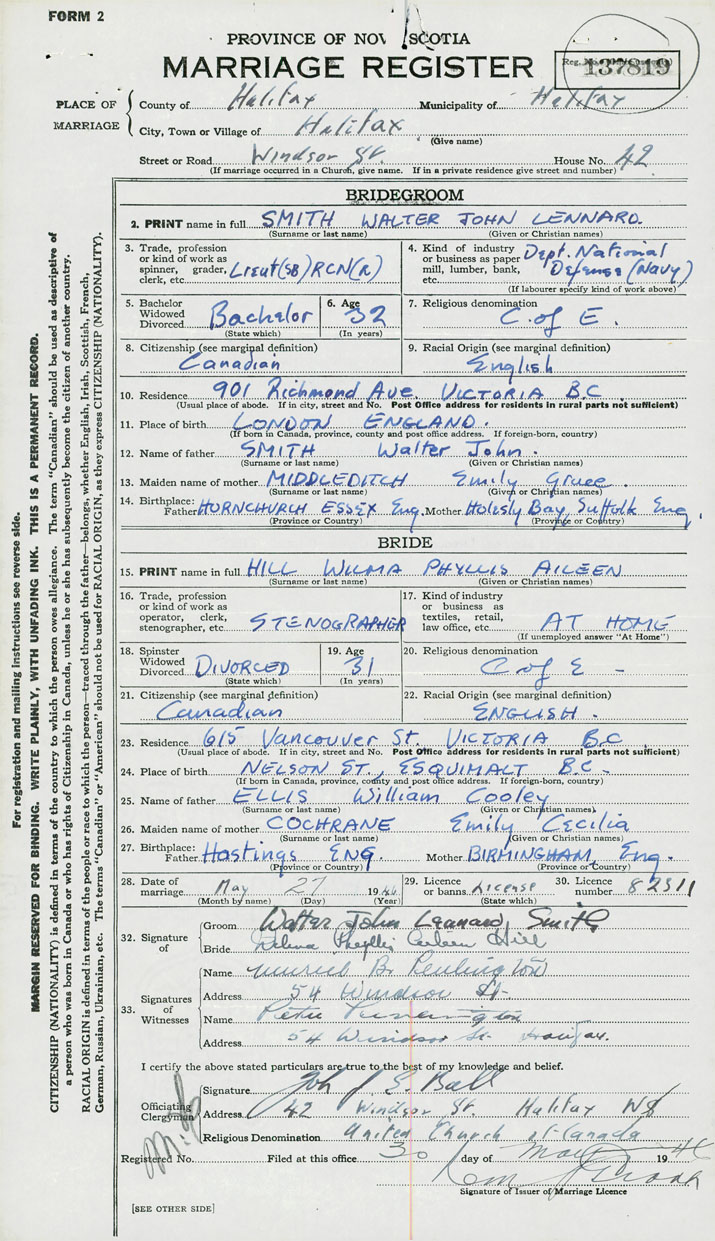 FORM 2
PROVINCE OF NOVA SCOTIA
MARRIAGE REGISTER
137819
PLACE OF MARRIAGE
County of Halifax Municipality of Halifax
City, Town or Village of Halifax
(Give name)
Street or Road Windsor St. House No. 42
(If marriage occurred in a Church, give name. If in a private residence give street and number)
BRIDEGROOM
2. PRINT name in full SMITH WALTER JOHN LENNARD.
(Surname or last name) (Given or Christian names)
3. Trade, profession or kind of work as spinner, grader, clerk, etc. Lieut(SB)RCN(R)
4. Kind of industry or business as paper mill, lumber, bank, etc. Dept. National Defense (Navy)
(If labourer specify kind of work above)
5. Bachelor Widowed Divorced Bachelor
(State which)
6. Age 32
(In years)
7. Religious denomination C. of E.
8. Citizenship (see marginal definition)
Canadian
9. Racial Origin (see marginal definition)
English
10. Residence 901 Richmond Ave. VICTORIA B.C
(Usual place of abode. If in city, street and No. Post Office address for residents in rural parts not sufficient)
11. Place of birth LONDON ENGLAND.
(If born in Canada, province, county and post office address. If foreign-born, country)
12. Name of father SMITH Walter John.
(Surname or last name) (Given or Christian names)
13. Maiden name of mother MIDDLEDITCH Emily
(Surname or last name) (Given or Christian names)
14. Birthplace: Father HORNCHURCH ESSEX Eng. Mother Holesly Bay, Suffolk Eng.
(Province or Country) (Province or Country)
BRIDE
15. PRINT name in full HILL WILMA PHYLLIS AILEEN
(Surname or last name) (Given or Christian names)
16. Trade, profession or kind of work as operator, clerk, stenographer, etc. STENOGRAPHER
17. Kind of industry or business as textiles, retail, law office, etc. AT HOME
(If unemployed answer "At Home")
18. Spinster Widowed Divorced DIVORCED
(State which)
19. Age 31
(In years)
20. Religious denomination
C of E -
21. Citizenship (see marginal definition)
Canadian
22. Racial Origin (see marginal definition)
ENGLISH.
23. Residence 615 Vancouver St. VICTORIA B.C
(Usual place of abode. If in city, street and No. Post Office address for residents in rural parts not sufficient)
24. Place of birth NELSON ST., ESQUIMALT B.C.
(If born in Canada, province, county and post office address. If foreign-born, country)
25. Name of father ELLIS William Cooley
(Surname or last name) (Given or Christian names)
26. Maiden name of mother COCHRANE Emily Cecilia
(Surname or last name) (Given or Christian names)
27. Birthplace: Father Hastings ENG. Mother BIRMINGHAM, Eng.
(Province or Country) (Province or Country)
28. Date of marriage May 27 1946
(Month by name) (Day) (Year)
29. Licence or banns License
(State which)
30. Licence number 82511
32. Signature of
Groom Walter John Leonard Smith
Bride Wilma Phyllis Aileen Hill
33. Signatures of Witnesses
Name Muriel B.
Address 54 Windsor St.
Name Peter
Address 54 Windsor St. Halifax.
I certify the above stated particulars are true to the best of my knowledge and belief.
Officiating Clergyman
Signature John J. E. Ball
Address 42 Windsor St. Halifax NS
Religious Denomination United Church of Canada
Registered No. Filed at this office 30 day of May 1946
Signature of Issuer of Marriage Licence
[SEE OTHER SIDE]
For registration and mailing instructions see reverse side.
MARGIN RESERVED FOR BINDING. WRITE PLAINLY, WITH UNFADING INK. THIS IS A PERMANENT RECORD.
CITIZENSHIP (NATIONALITY) is defined in terms of the country to which the person owes allegiance. The term "Canadian" should be used as descriptive of
a person who was born in Canada or who has rights of Citizenship in Canada, unless he or she has subsequently become the citizen of another country.
RACIAL ORIGIN is defined in terms of the people or race to which the person—traced through the father—belongs, whether English, Irish, Scottish, French,
German, Russian, Ukrainian, etc. The terms "Canadian" or "American" should not be used for RACIAL ORIGIN, as they express CITIZENSHIP (NATIONALITY).